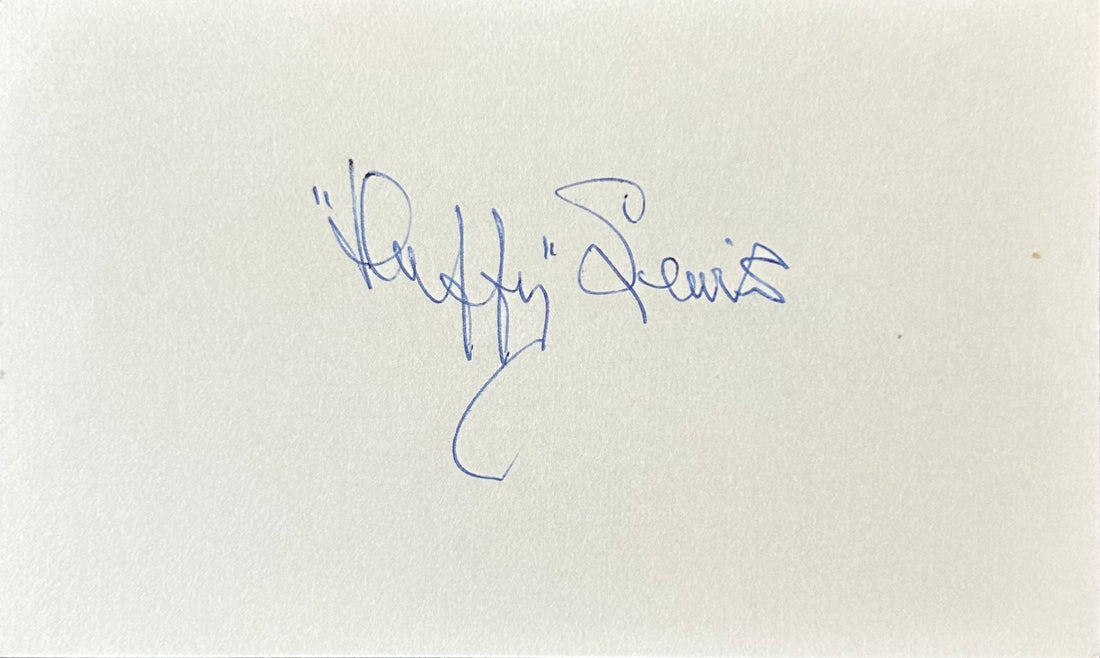 "Duffy" Lewis